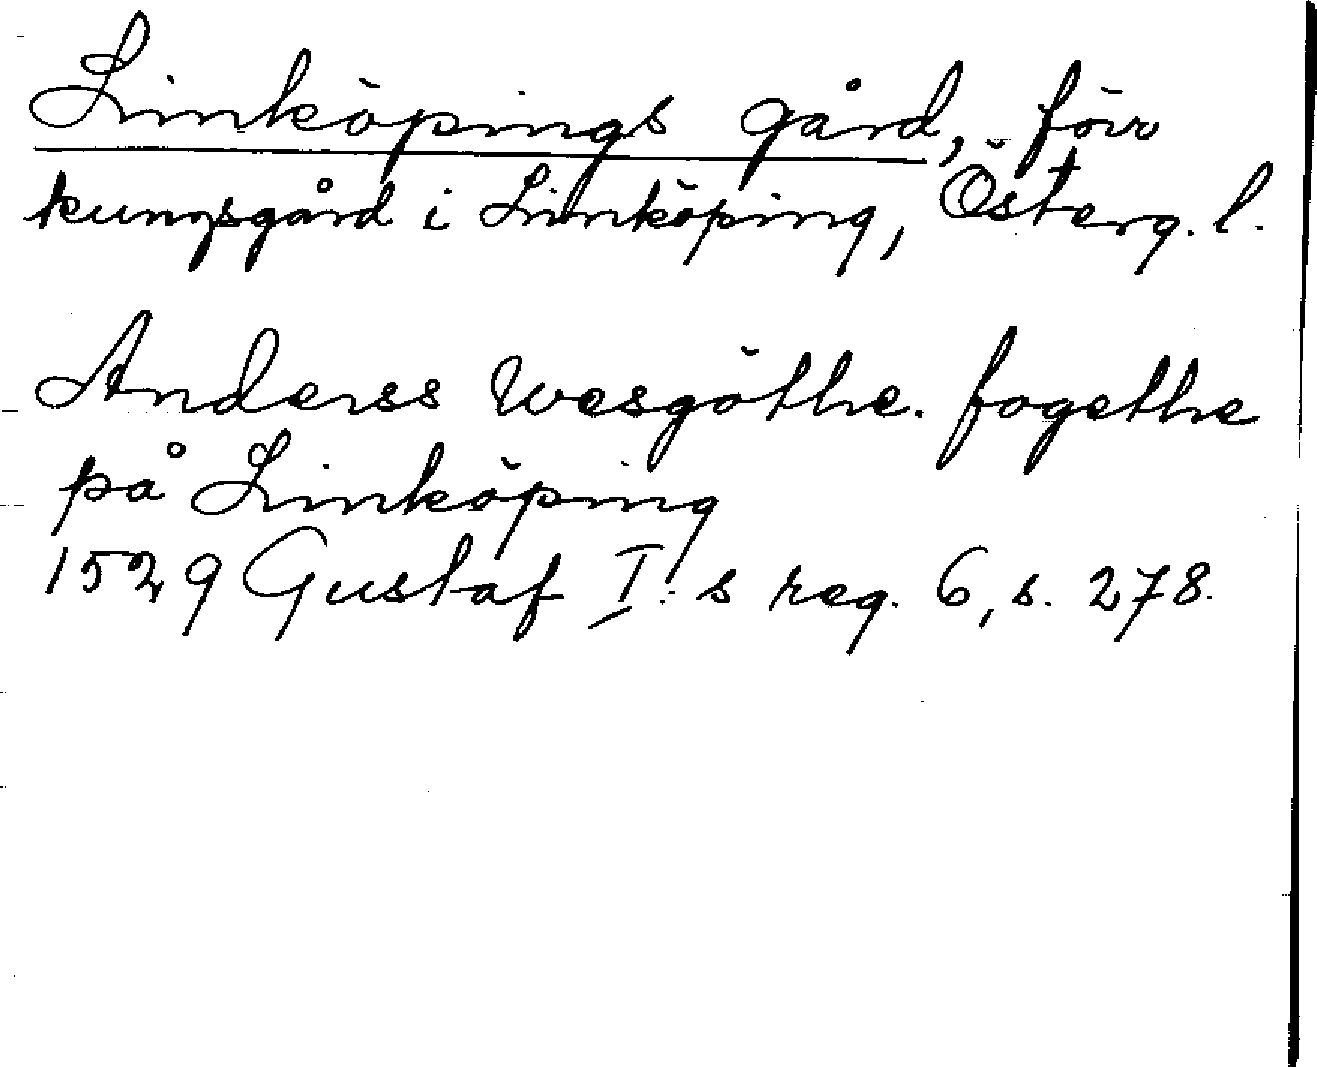 Linköpings gård, förr
kungsgård i Linköping, Österg. l.
Anderss Wesgöthe. fogethe
på Linköping
1529 Gustaf I:s reg. 6, s. 278.